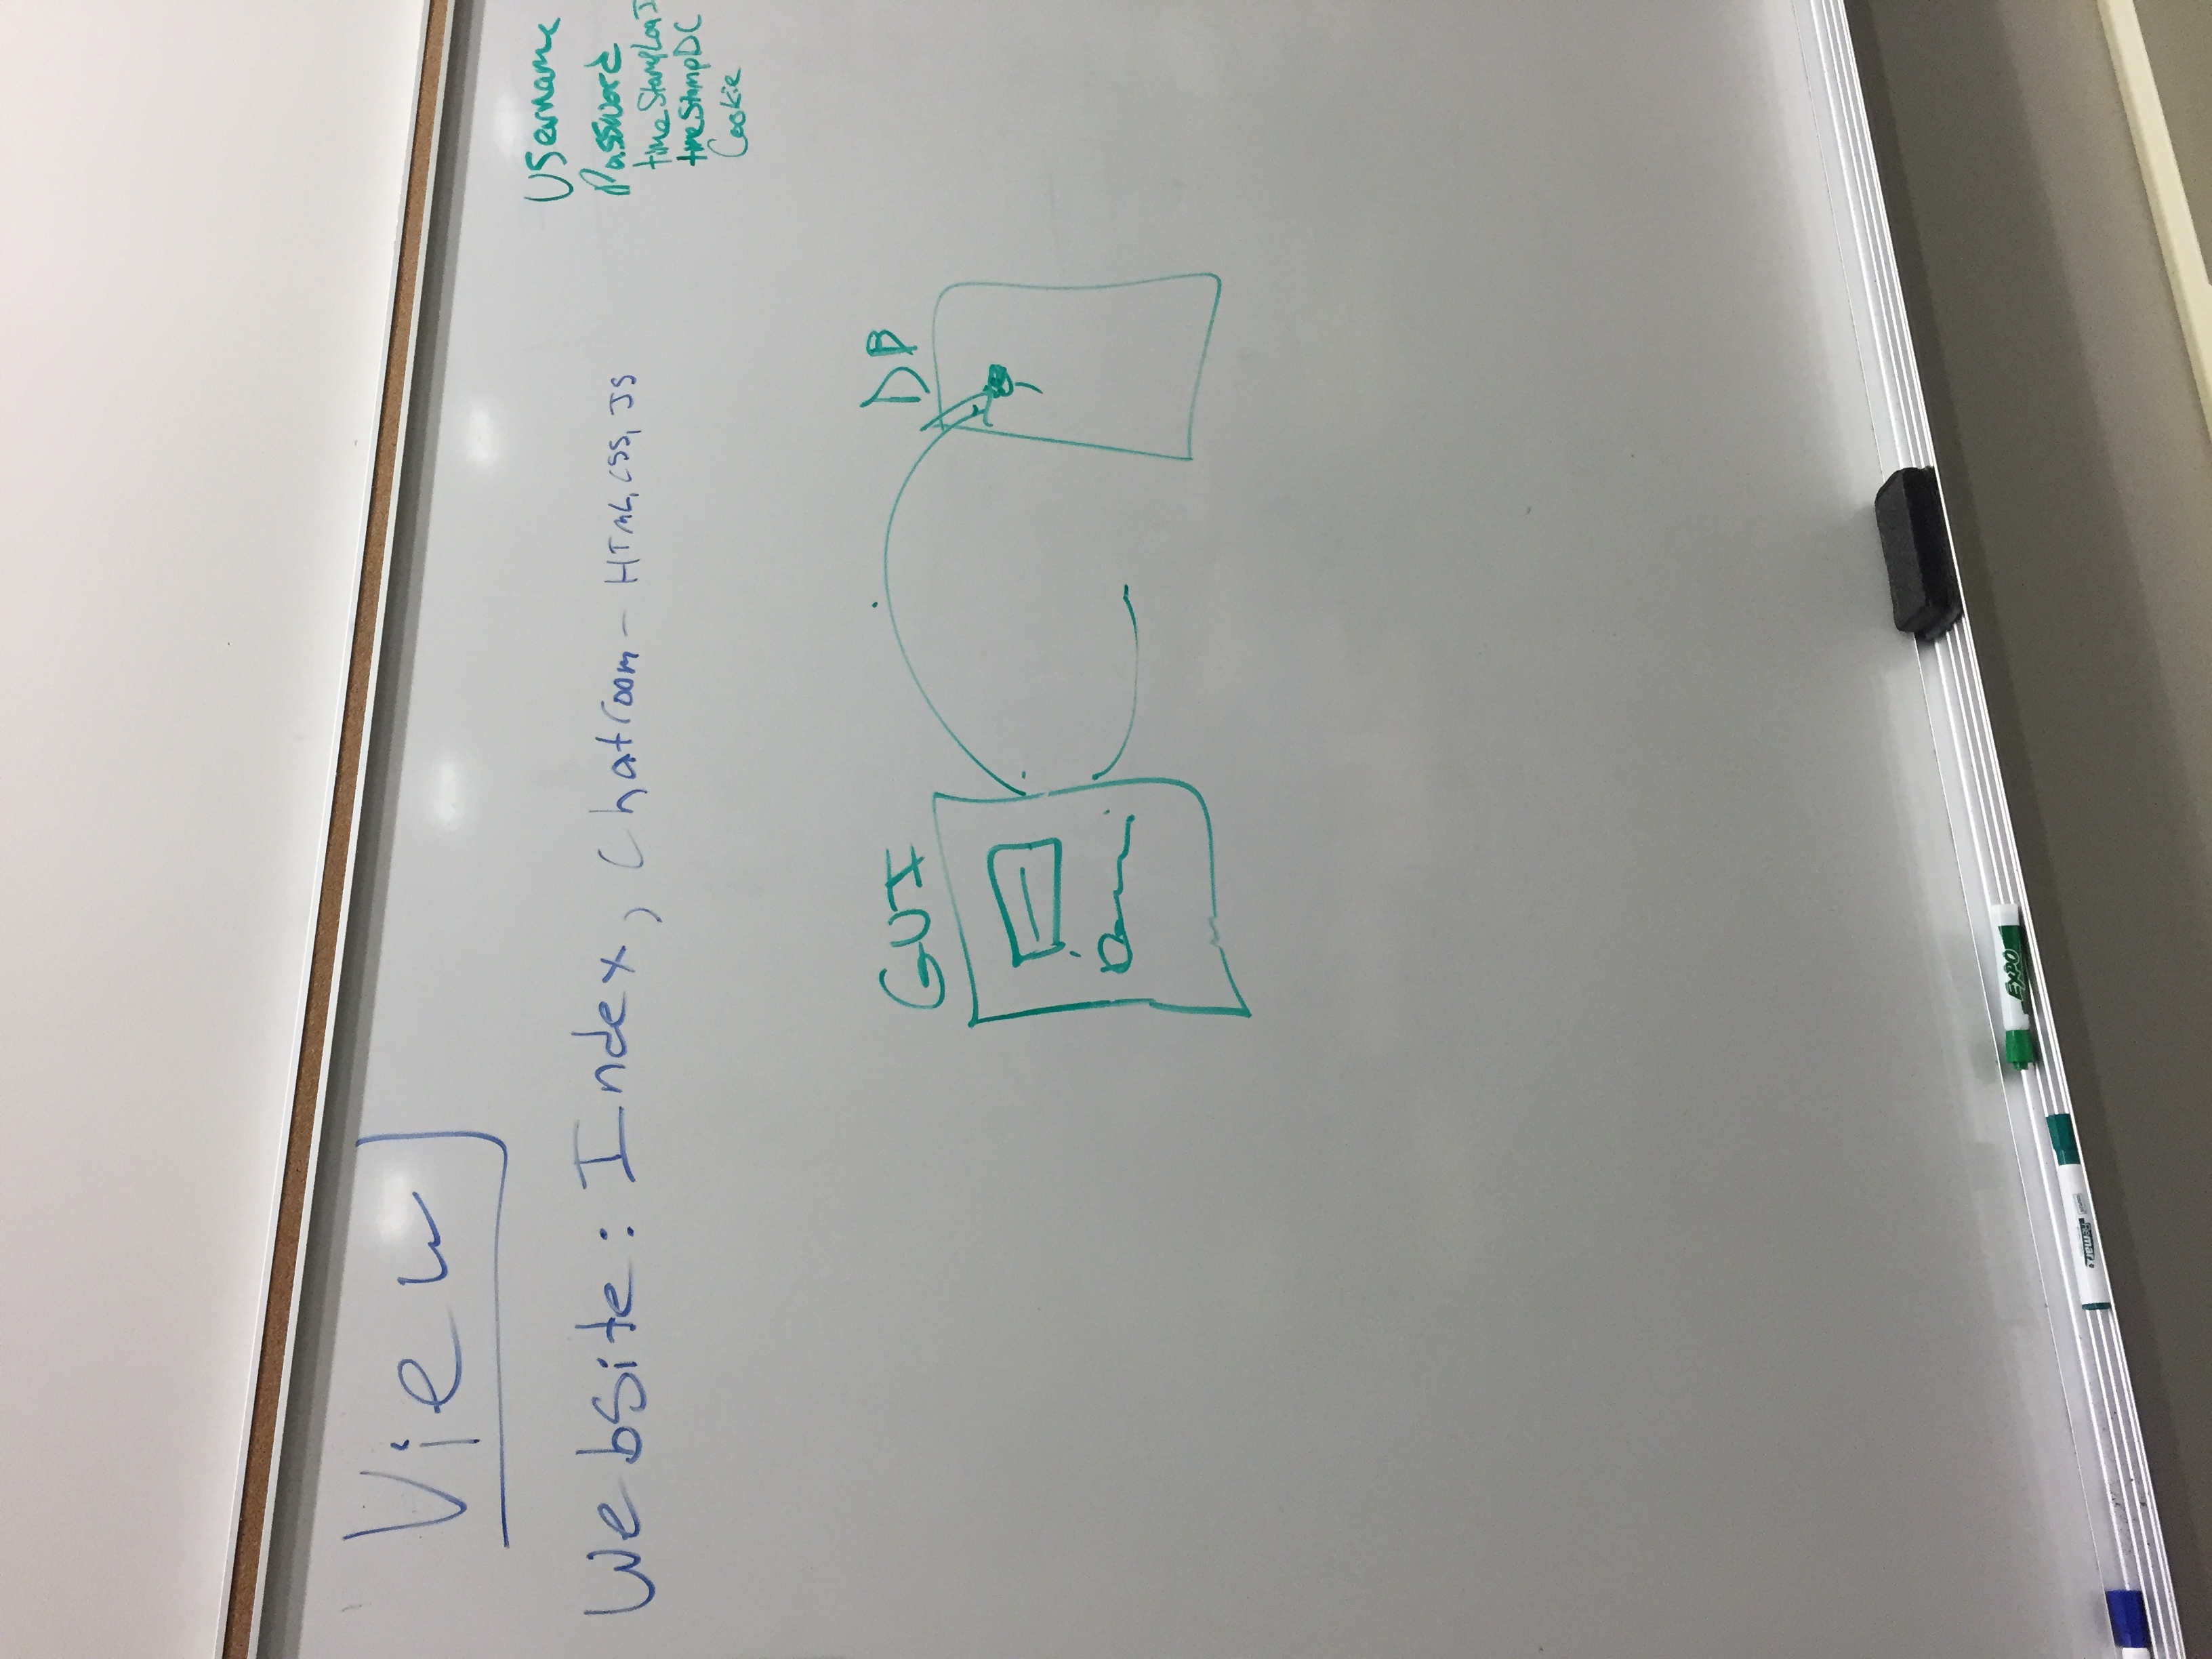 View
Website: Index, Chatroom - HTML, CSS, JS
Username
Password
timeStampLogI
timeStampDC
Cookie
GUI
DB
EXPO